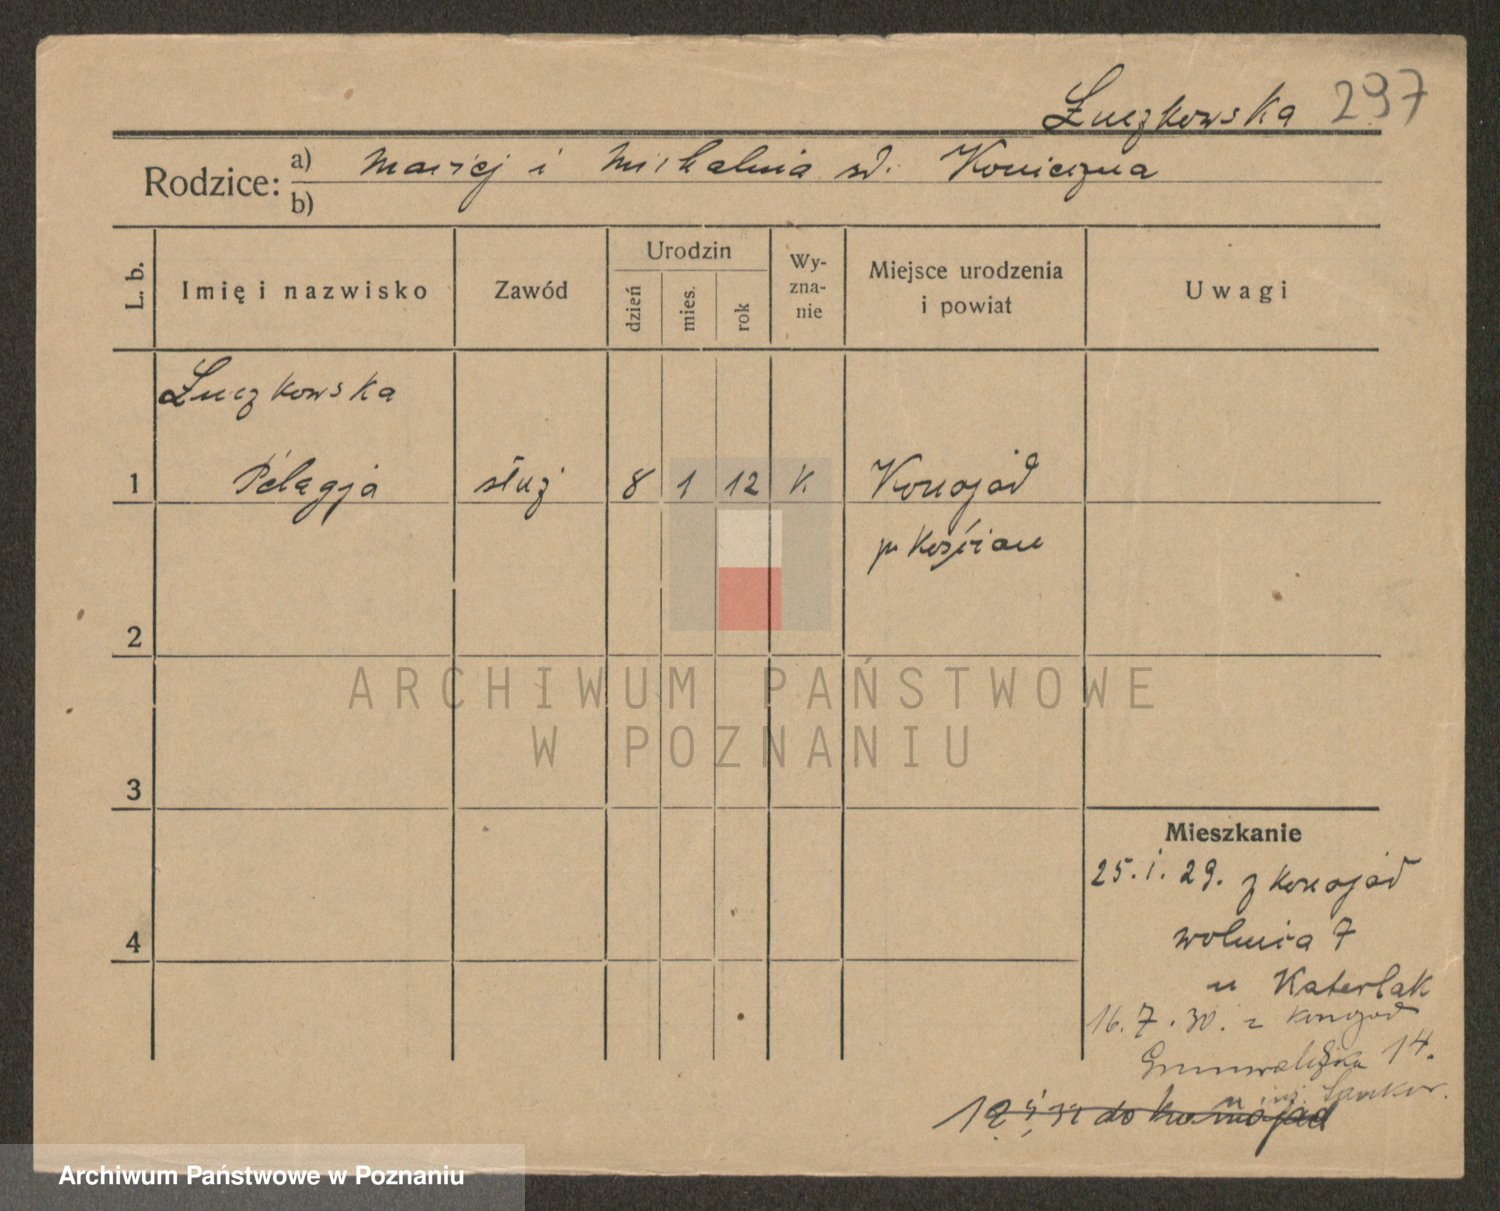 Łuczkowska 297
Rodzice: a) Maciej i Michalina zd. Konieczna
b)
L. b. Imię i nazwisko Zawód Urodzin dzień mies. rok Wy-zna-nie Miejsce urodzenia i powiat Uwagi
Łuczkowska
1 Pelagja służ 8 1 12 K. Konojad
p. Kościan
2
ARCHIWUM PAŃSTWOWE
W POZNANIU
3
Mieszkanie
25.1.29. z Konojad
4 Wolnica 7
u Katerlak
16.7.30. z Konojad
Grunwaldzka 14.
u
12 32 do Konojad
Archiwum Państwowe w Poznaniu